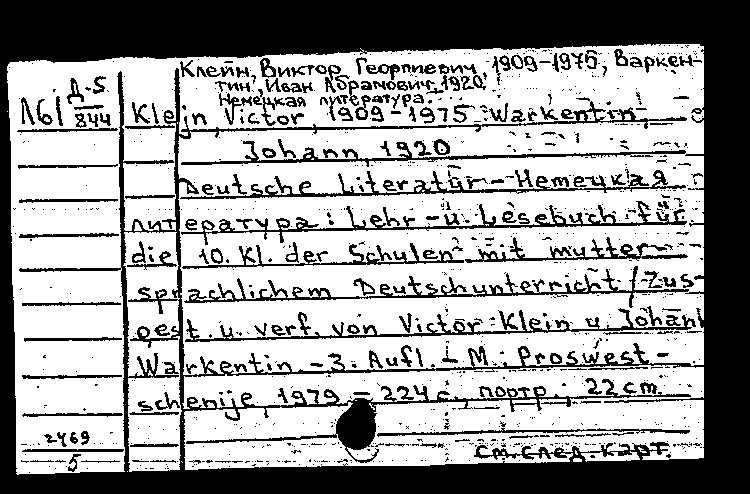 Клейн, Виктор Георгиевич, 1909-1975, Варкен-
тин, Иван Абрамович, 1920.
Немецкая литература.
Л61 Д-5
844
Klejn, Victor, 1909-1975, Warkentin,
Johann, 1920
Deutsche Literatur - Немецкая
литература: Lehr- u. Lesebuch für
die 10. Kl. der Schulen mit mutter-
sprachlichem Deutschunterricht / Zus-
gest. u. verf. von Victor Klein u. Johann
Warkentin. - 3. Aufl. - M.: Proswest-
schenije, 1979. - 224 с., портр.; 22 cm.
2469
5
См. след. карт.